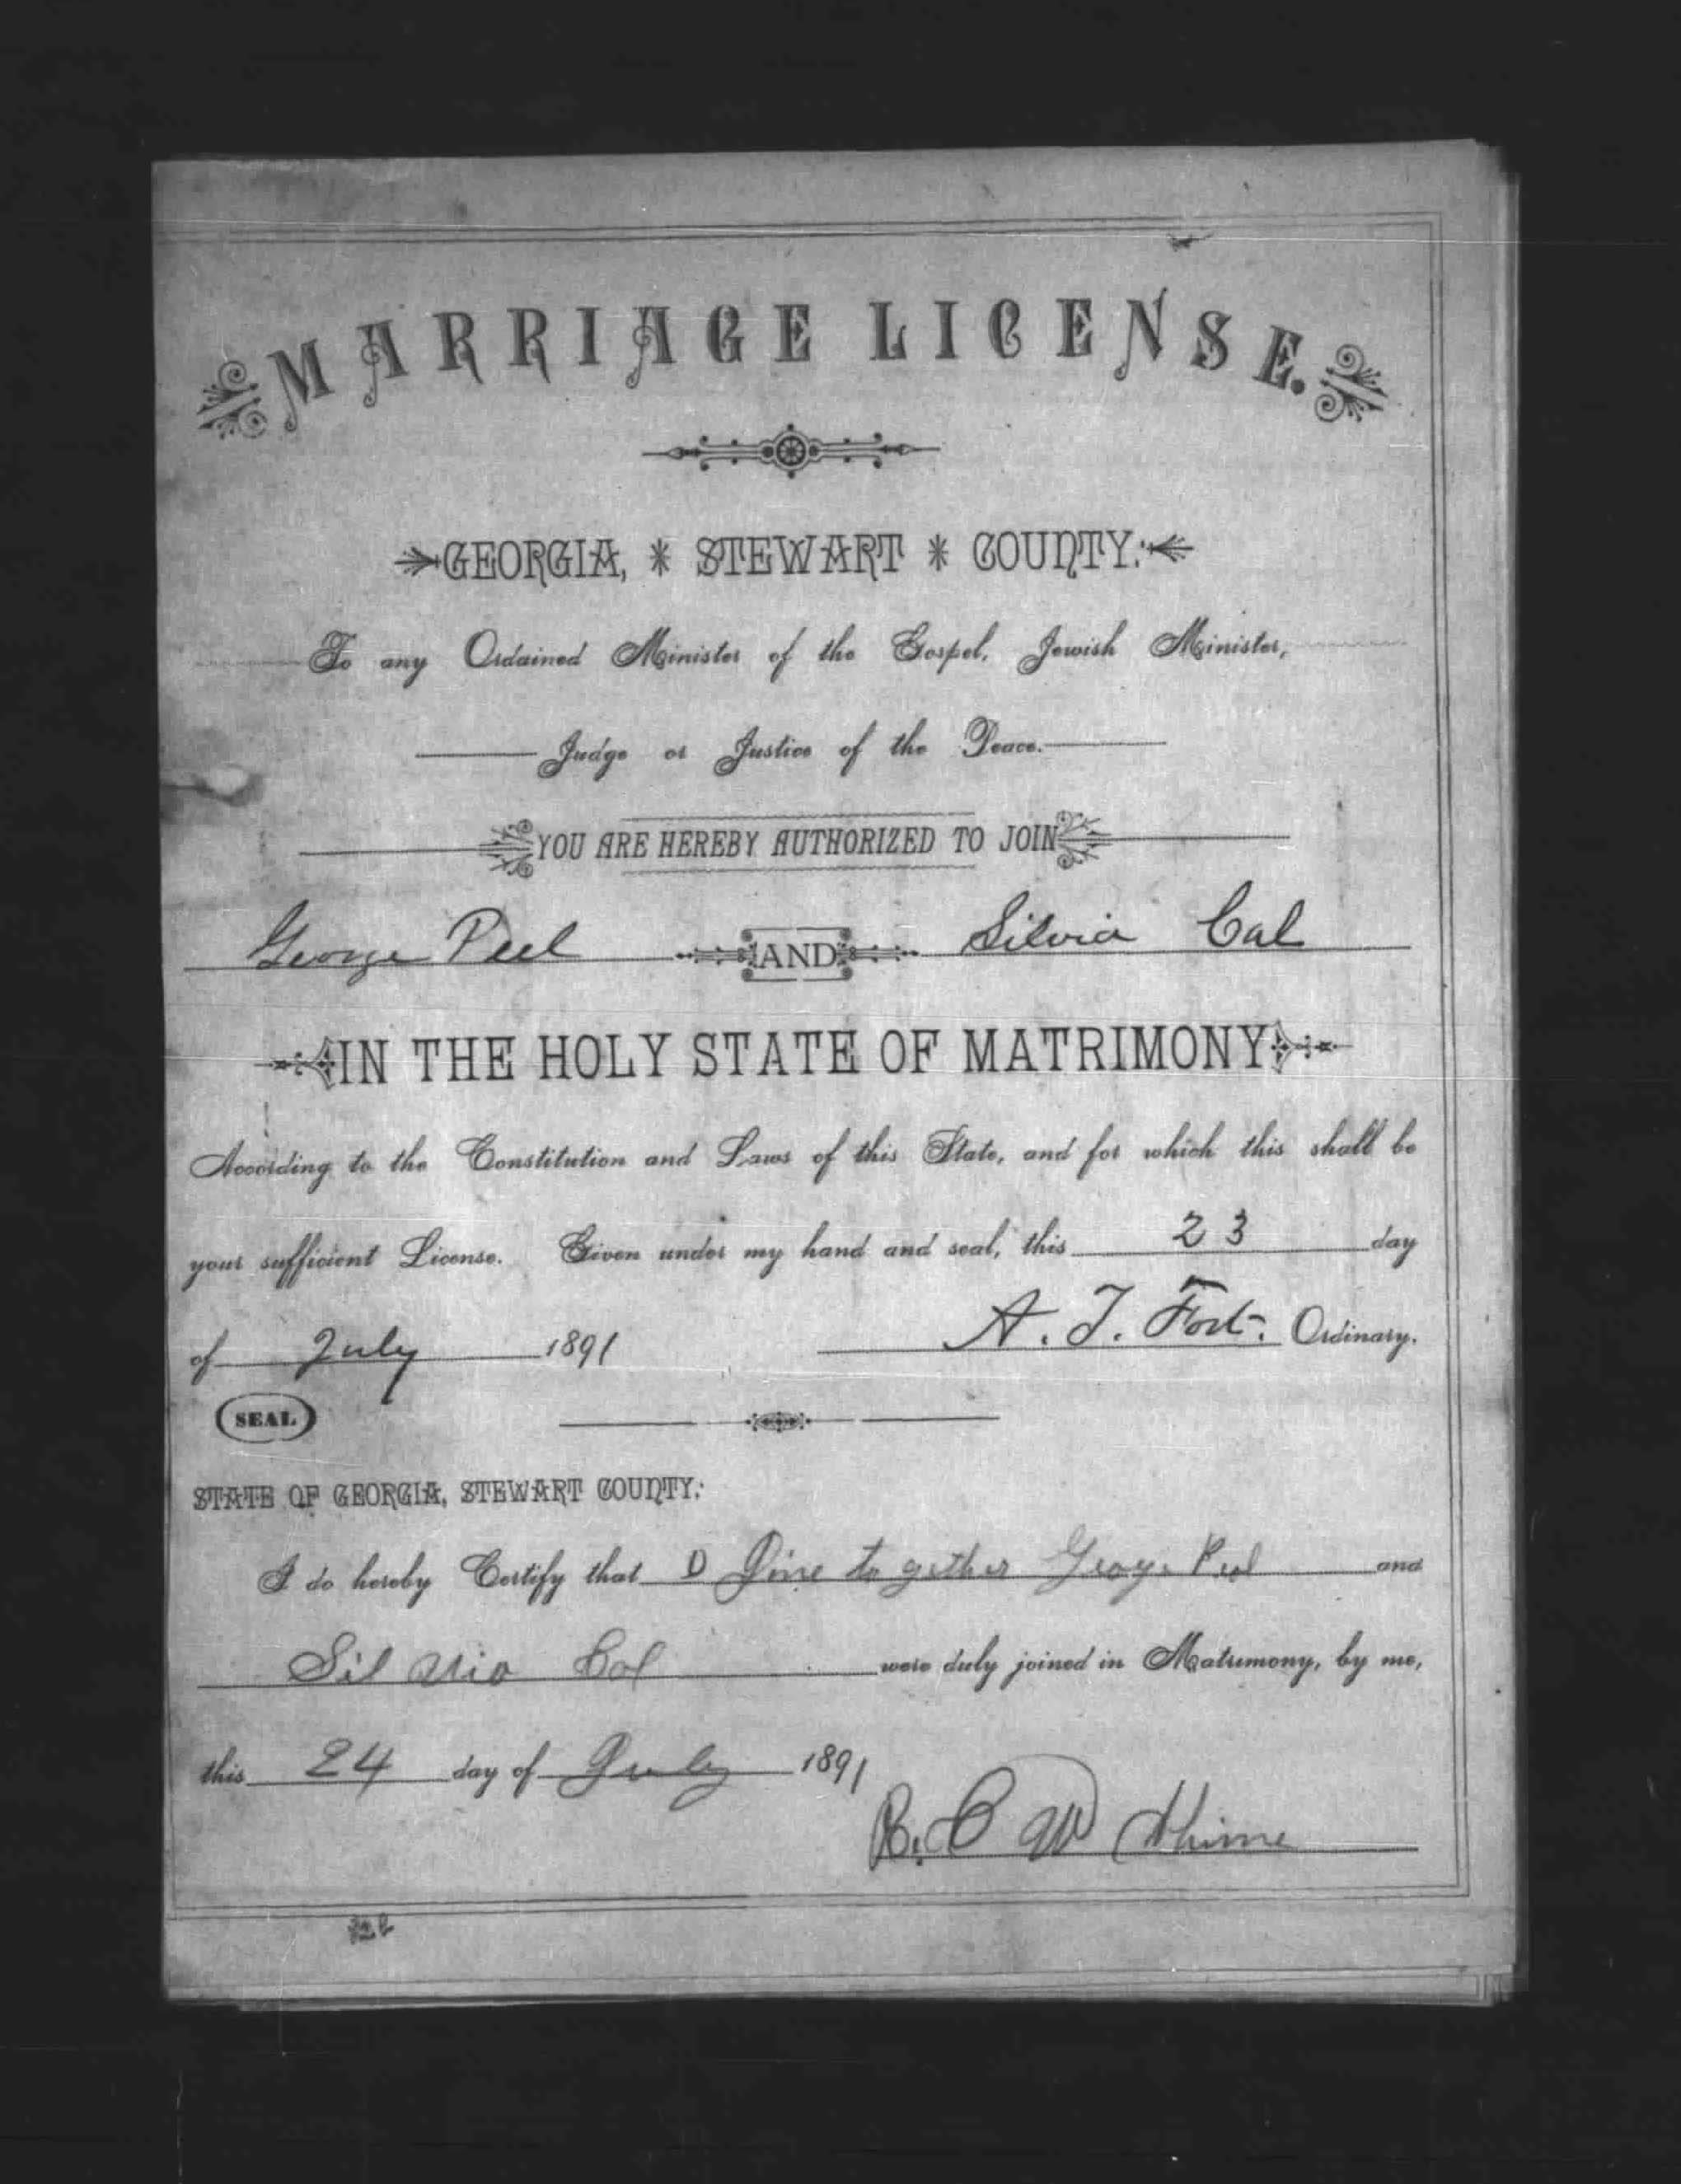 MARRIAGE LICENSE.
GEORGIA, * STEWART * COUNTY:
To any Ordained Minister of the Gospel, Jewish Minister,
Judge or Justice of the Peace.
YOU ARE HEREBY AUTHORIZED TO JOIN
George Peel AND Silvia Cal
IN THE HOLY STATE OF MATRIMONY
According to the Constitution and Laws of this State, and for which this shall be
your sufficient License. Given under my hand and seal, this 23 day
of July 1891 A. T. Fort. Ordinary.
SEAL
STATE OF GEORGIA, STEWART COUNTY:
I do hereby Certify that Jine to gether Peel and
Sil via Cal were duly joined in Matrimony, by me,
this 24 day of July 1891
R. C W